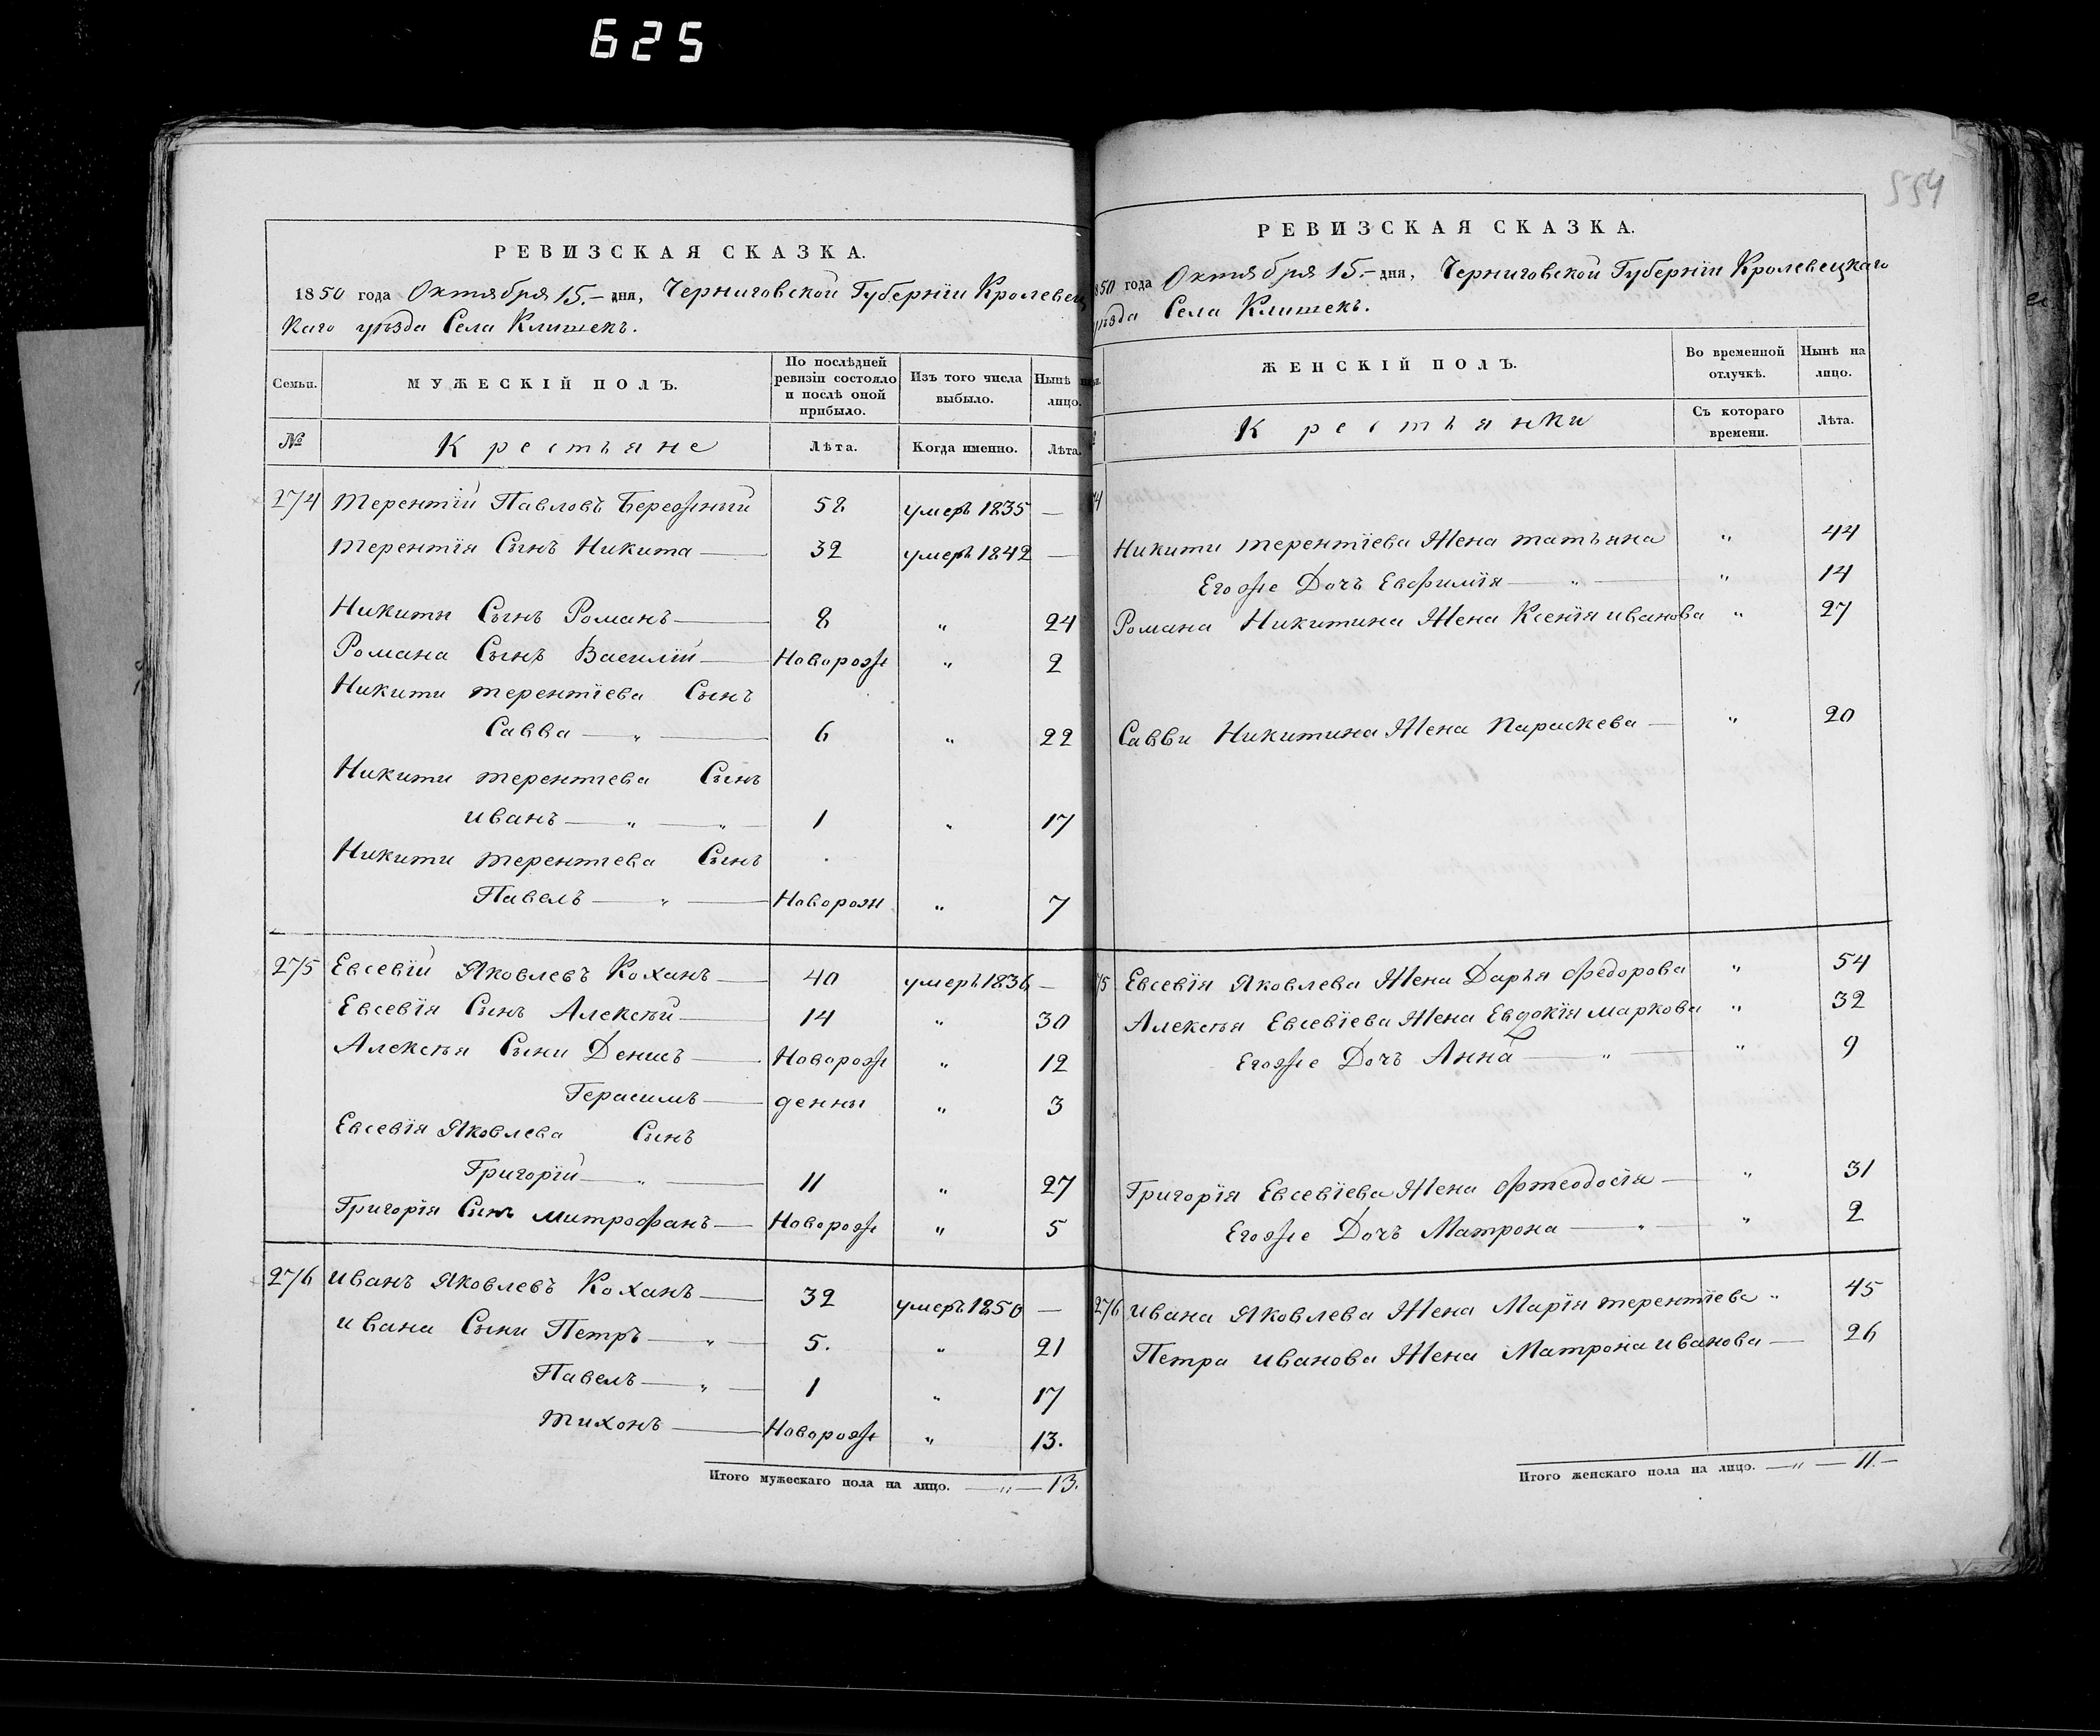 625
554
РЕВИЗСКАЯ СКАЗКА.
1850 года Октября 15.– дня, Черниговской Губернїи Кролевец
каго уѣзда Села Клишекъ.
Семьи.
МУЖЕСКІЙ ПОЛЪ.
По послѣдней ревизіи состояло и послѣ оной прибыло.
Изъ того числа выбыло.
Нынѣ на лицо.
№
Крестьяне
Лѣта.
Когда именно.
Лѣта.
274 Терентїй Павловъ Бережный 58 умеръ 1835 —
Терентїя Сынъ Никита — 32 умеръ 1842 —
Никиты Сынъ Романъ — 8 „ 24
Романа Сынъ Василїй — Новорож „ 2
Никити Терентїева Сынъ
Савва — „ — 6 „ 22
Никити Терентїева Сынъ
Иванъ — „ — „ — 1 „ 17
Никити Терентїева Сынъ
Павелъ — „ — Новорож „ 7
275 Евсевїй Яковлевъ Коханъ — 40 умеръ 1836 —
Евсевїя Сынъ Алексѣй — 14 „ 30
Алексѣя Сыни Денисъ — Новорож „ 12
Герасимъ — денны „ 3
Евсевїя Яковлева Сынъ
Григорїй — „ — 11 „ 27
Григорїя Сынъ Митрофанъ — Новорож „ 5
276 Иванъ Яковлевъ Коханъ — 32 умеръ 1850 —
Ивана Сыни Петръ — „ — 5. „ 21
Павелъ — „ — 1 „ 17
Тихонъ — Новорож „ 13.
Итого мужескаго пола на лицо. — „ — 13.
РЕВИЗСКАЯ СКАЗКА.
850 года Октября 15.– дня, Черниговской Губернїи Кролевецкаго
уѣзда Села Клишекъ.
ЖЕНСКІЙ ПОЛЪ.
Во временной отлучкѣ.
Нынѣ на лицо.
Крестьянки
Съ котораго времени.
Лѣта.
74
Никити Терентїева Жена Татьяна „ 44
Егоже Дочъ Евфимїя — „ — „ 14
Романа Никитина Жена Ксенїя Иванова „ 27
Савви Никитина Жена Параскева — „ 20
75 Евсевїя Яковлева Жена Дарья Федорова „ 54
Алексѣя Евсевїева Жена Евдокїя Маркова „ 32
Егоже Дочъ Анна — „ — „ 9
Григорїя Евсевїева Жена Фтеодосїя — „ 31
Егоже Дочъ Матрона — „ — „ 2
276 Ивана Яковлева Жена Марїя Терентїева „ 45
Петра Иванова Жена Матрона Иванова — 26
Итого женскаго пола на лицо. — „ — 11.–